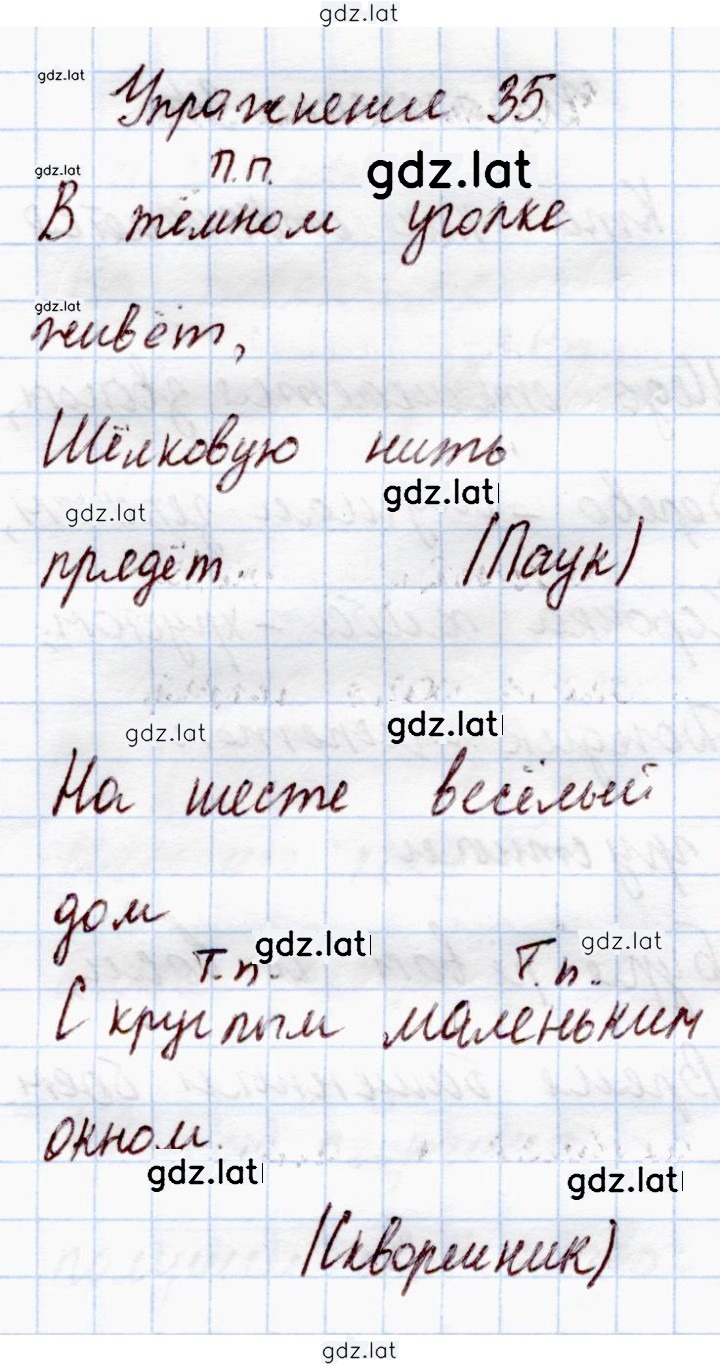 gdz.lat
gdz.lat
Упражнение 35
gdz.lat
П.п.
gdz.lat
В тёмном уголке
gdz.lat
живёт,
Шёлковую нить
gdz.lat
gdz.lat
прядёт. (Паук)
gdz.lat
gdz.lat
На шесте весёлый
дом
gdz.lat
gdz.lat
Т.п. Т.п.
С круглым маленьким
окном.
gdz.lat
gdz.lat
(Скворешник)
gdz.lat